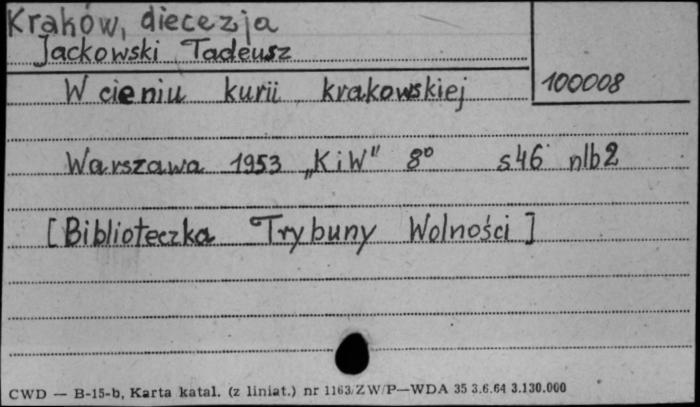 Kraków, diecezja
Jackowski Tadeusz
W cieniu kurii krakowskiej
100008
Warszawa 1953 „KiW" 8° s46 nlb2
[Biblioteczka Trybuny Wolności]
CWD — B-15-b, Karta katal. (z liniat.) nr 1163/ZW/P—WDA 35 3.6.64 3.130.000